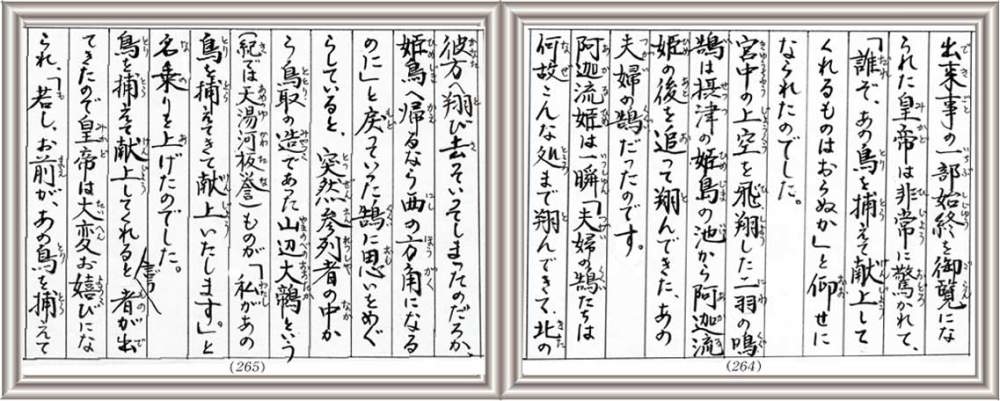 出来事の一部始終を御覧にな
られた皇帝は非常に驚かれて、
「誰ぞ、あの鳥を捕えて献上して
くれるものはおらぬか」と仰せに
なられたのでした。
宮中の上空を飛翔した一羽の鳴
鵠は摂津の姫島の池から阿迦流
姫の後を追って翔んできた、あの
夫婦の鵠だったのです。
阿迦流姫は一瞬「夫婦の鵠たちは
何故こんな処まで翔んできて、北の
(264)
彼方へ翔び去っていってしまったのだろか、
姫島へ帰るなら西の方角になる
のに」と戻っていった鵠に思いをめぐ
らしていると、突然参列者の中か
ら鳥取の造であった山辺大鶙という
(紀では天湯河板誉)ものが「私があの
鳥を捕えてきて献上いたします。」と
名乗りを上げたのでした。
鳥を捕えて献上してくれると言う者が出
てきたので皇帝は大変お嬉びにな
られ、「若し、お前が、あの鳥を捕えて
(265)